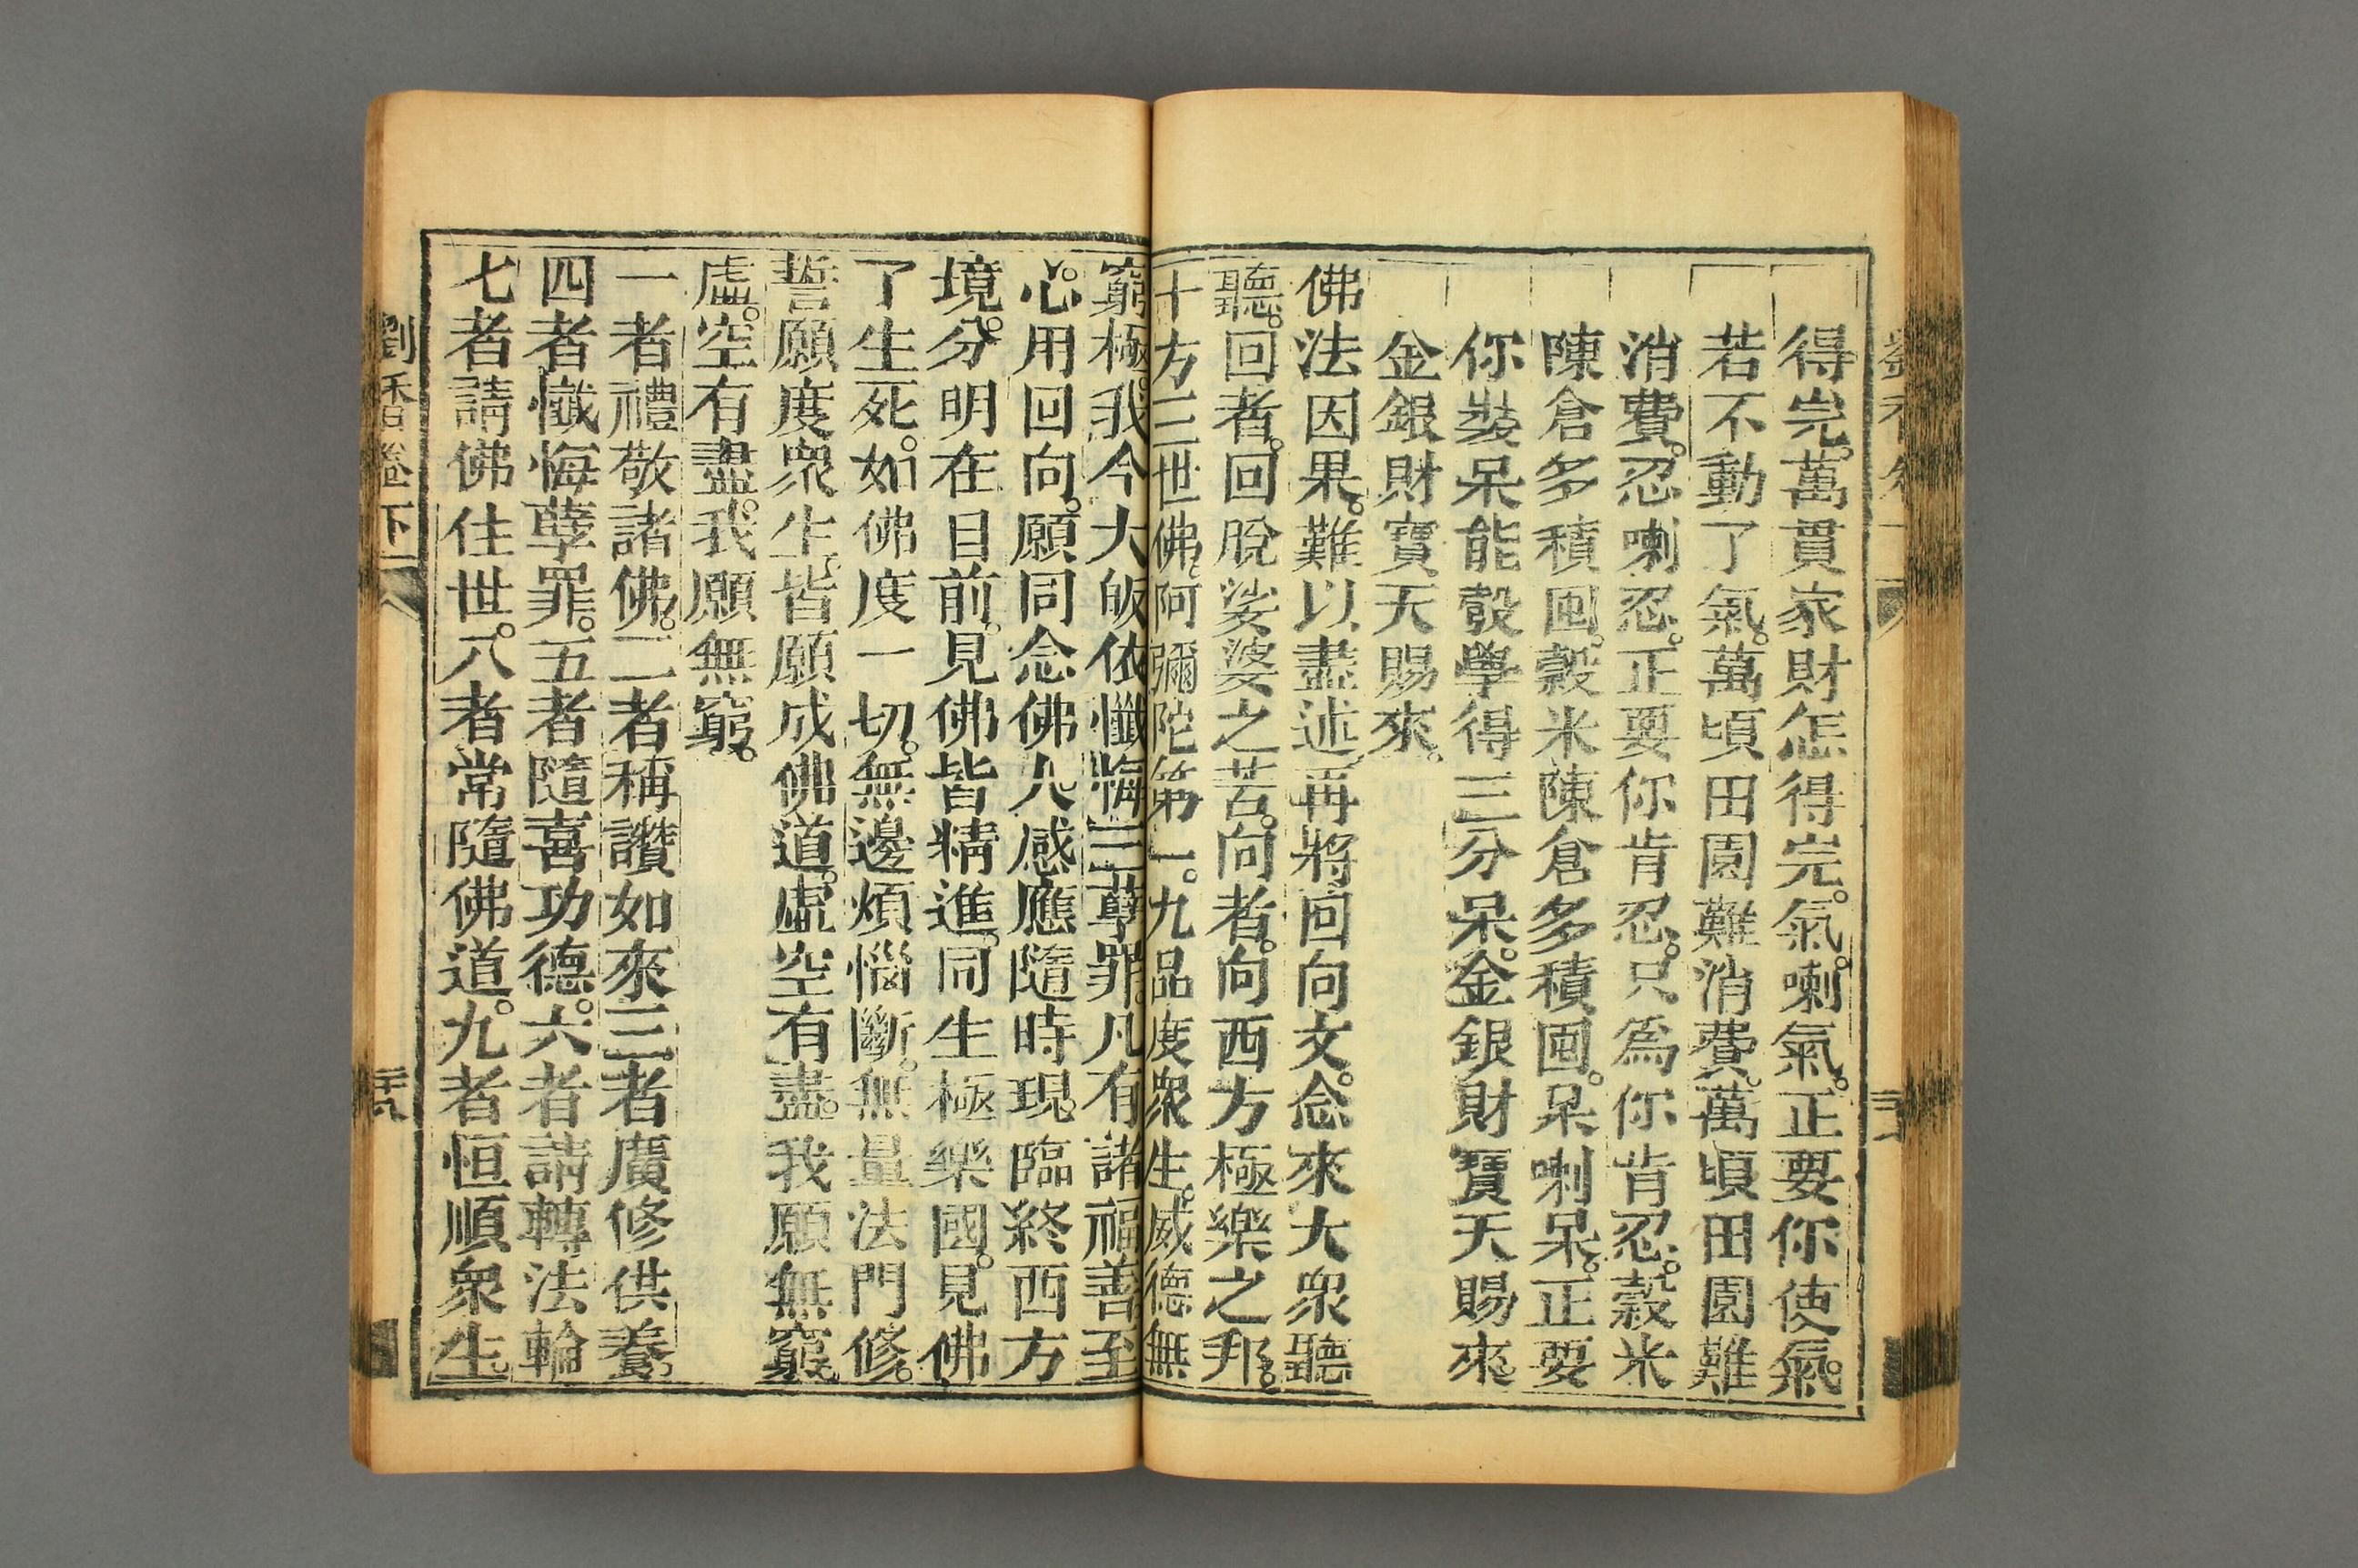 得完。萬貫家財怎得完。氣喇氣。正要你使氣。
若不動了氣。萬頃田園難消費。萬頃田園難
消費。忍喇忍。正要你肯忍。只為你肯忍。穀米
陳倉多積囤。穀米陳倉多積囤。呆喇呆。正要
你裝呆能彀學得三分呆。金銀財寶天賜來。
金銀財寶天賜來。
佛法因果。難以盡述再將回向文。念來大衆聽
聽。回者。回脫娑婆之苦。向者。向西方極樂之邦。
十方三世佛。阿彌陀第一。九品度衆生。威德無
窮極。我今大皈依懺悔三孽罪。凡有諸福善至
心。用回向。願同念佛人。感應隨時現。臨終西方
境。分明在目前。見佛皆精進。同生極樂國。見佛
了生死。如佛度一切。無邊煩惱斷。無量法門修。
誓願度衆生。皆願成佛道。虛空有盡。我願無窮。
虛。空有盡。我願無窮。
一者禮敬諸佛。二者稱讚如來三者廣修供養。
四者懺悔孽罪。五者隨喜功德。六者請轉法輪
七者請佛住世。八者常隨佛道。九者恒順衆生。
劉香卷下
三十八